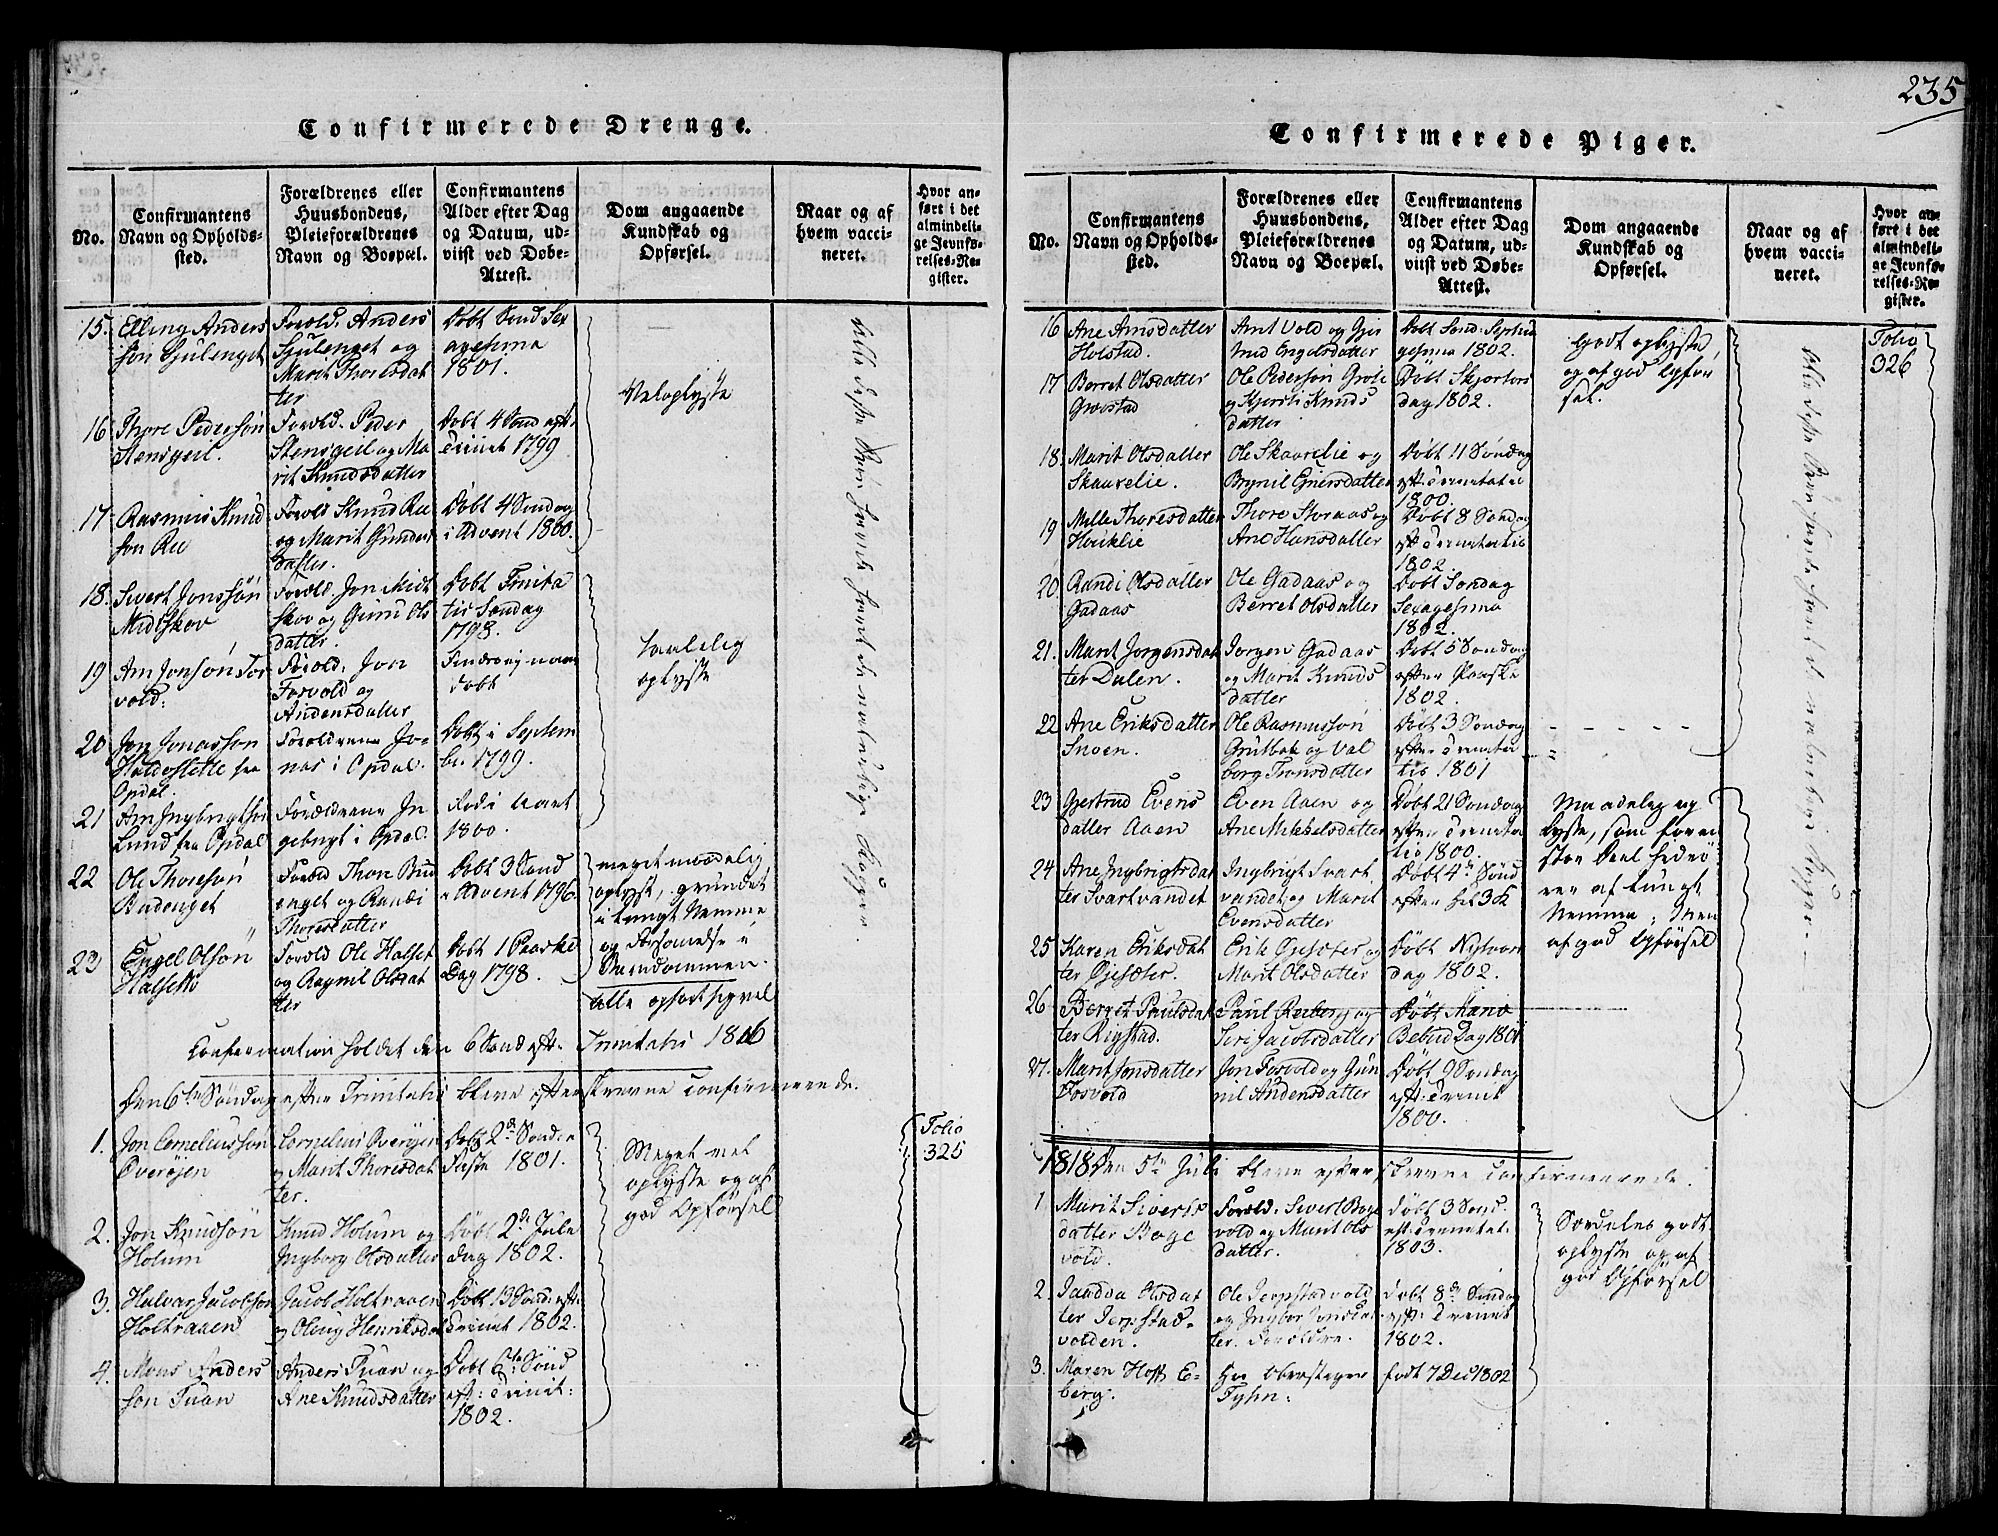 235
Confirmerede Drenge.
No.
Confirmantens
Navn og Opholds-
sted.
Forældrenes eller
Huusbondens,
Pleieforældrenes
Navn og Boepæl.
Confirmantens
Alder efter Dag
og Datum, ud-
viist ved Døbe-
Attest.
Dom angaaende
Kundskab og
Opførsel.
Naar og af
hvem vacci-
neret.
Hvor an-
ført i det
almindeli-
ge Jevnfø-
relses-Re-
gister.
15.
Elling Anders
søn Gjulenget
Foræld. Anders
Gjulenget og
Marit Thoresdat
ter
Døbt Sønd Sex
agesima
1801.
Veloplyste
16
Thore Pedersøn
Stensgeil.
Foræld. Peder
Stensgeil og Ma
rit Knudsdatter
Døbt 4 Sønd eft.
Trinit 1799
17
Rasmus Knud
søn Ree
Foræld Knud Ree
og Marit Gunders
datter.
Døbt 4 Søndag
i Advent 1800.
18.
Sivert Jonssøn
Midtskov
Foræld. Jon Midt
skov og Guru Ols
datter.
Døbt Trinita
tis Søndag
1798.
19
Arn Jonsøn Fos
vold.
Foræld. Jon
Fosvold og
Andersdatter
døbt
taalelig
oplyste
20
Jon Jonassøn
fra
Opdal.
Forældrene Jo-
nas i Opdal.
Døbt i Septem
br. 1799.
21
Arn Ingbrigtsøn
Lund fra Opdal
Forældrene In
gebrigt i Opdal.
Fød i
1800.
22
Ole Thoresøn
Budenget
Foræld Thore Bud
enget og Randi
Thoresdatter
Døbt 3 Sønd
i Advent 1796.
meget maadelig
oplyst, grundet
i tungt Nemme
og Forsømelse i
Barndommen.
23
Engel Olsøn
Halseth
Foræld Ole Halset
og Ragnil Olsdat
ter
Døbt 1 Paaske
Dag 1798.
alle opført sig vel
alle disse Børn havde havt de naturlige Kopper.
Confirmation holdet den 6 Sønd eft. Trinitatis 1816
Den 6te Søndag efter Trinitatis bleve efterskrevne confirmerede.
1.
Jon Corneliussøn
Øverøjen
Cornelius Øverøjen
og Marit Thoresdat
ter.
Døbt 2d Sønd. i
Faste 1801.
Meget vel
oplyste og af
god Opførsel
Folio
325
2.
Jon Knudsøn
Holum
Knud Holum og
Ingborg Olsdatter
Døbt 2de Jule
dag 1802.
3.
Halvar Jacobsøn
Holtraaen
Jacob Holtraaen
og Oling Henriksdat
Døbt 13 Sønd. efter
Trinit 1802.
4.
Mons Anders
søn Tuan
Anders Tuan og
Ane Knudsdatter
Døbt 6te Sønd
eft: Trinit:
1802.
Confirmerede Piger.
No.
Confirmantens
Navn og Opholds-
sted.
Forældrenes eller
Huusbondens,
Pleieforældrenes
Navn og Boepæl.
Confirmantens
Alder efter Dag
og Datum, ud-
viist ved Døbe-
Attest.
Dom angaaende
Kundskab og
Opførsel.
Naar og af
hvem vacci-
neret.
Hvor an-
ført i det
almindeli-
ge Jevnfø-
relses-Re-
gister.
16
Ane Arnsdatter
Holstad.
Arnt Vold og Gjer
trud Engelsdatter
Døbt Sønd: Septua
gesima 1802.
godt oplyste
og af god Opfør
sel.
Folio
326
17
Berret Olsdatter
Grøtstad
Ole Pedersøn Grøte
og Kjersti Knuds
datter
Døbt Skjærtors
dag 1802.
18.
Marit Olsdatter
Skaurelie.
Ole Skaurelie og
Brynil Ejnersdatter
Døbt 11 Søndag
eft Trinitatis
1800.
19
Mille Thoresdatter
Thore Storaas og
Ane Hansdatter
Døbt 8 Søndag
eft Trinitatis
1802.
20
Randi Olsdatter
Gadaas
Ole Gadaas og
Berret Olsdatter
Døbt Søndag
Sexagesima
1802.
21.
Marit Jørgensdat
ter Dalen.
Jørgen Gadaas
og Marit Knuds
datter
Døbt 5 Søndag
efter Paaske
1802.
22
Ane Eriksdatter
Snoen.
Ole Rasmussøn
Grutbak og Val
borg Tronsdatter
Døbt 3 Søndag
efter Trinita
tis 1801
23
Gjertrud Evens
datter Aaen
Even Aaen og
Ane Mikkelsdatter
Døbt 21 Søndag
efter Trinita
tis 1800.
Maadelig op
lyste, som for en
stor Deel hidrø
rer af tungt
Nemme; Men
af god Opførsel
24
Ane Ingbrigtsdat
ter Svartvandet
Ingbrigt Svart
vandet og Marit
Evensdatter
Døbt 4de Sønd
efter hel 3 K
25
Karen Eriksdat
ter Øjesæter.
Erik Øjesæter og
Marit Olsdatter
Døbt Nytaars
dag 1802.
26
Berget Paulsdat
ter Rigstad.
Paul Reeberg og
Siri Jacobsdatter
Døbt Mariæ
Bebud Dag 1801
27.
Marit Jonsdatter
Fosvold
Jon Fosvold og Gun
nil Andersdatter
Døbt 9 Søndag
eft: Trinit
1800.
alle disse Børn havde havt de naturlige Kopper.
1818. Den 5te Juli bleve efterskrevne confirmerede.
1
Marit Siverts
datter Bage
vold.
Foræld. Sivert Bage
vold og Marit Ols
datter.
Døbt 3 Sønd.
eft: Trinitat:
1803.
Særdeles godt
oplyste og af
god Opførsel
2
Olsdat
ter Jerpstad-
volden.
Ole Jerpstadvold
og Ingbor Jonsdat
ter. Forældre.
Døbt 8de Søndag
eft: Trinit
1802.
3.
Maren Hoff E-
berg.
Hr Oberstager
Tyhn:
født 7 Dec 1802